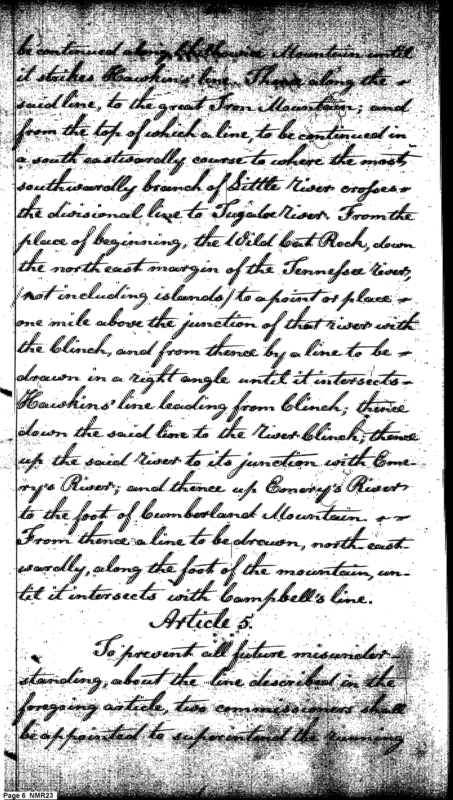 be continued along Chilhowie Mountain until
it strikes Hawkins' line. Thence along the
said line, to the great Iron Mountain; and
from the top of which a line, to be continued in
a south eastwardly course to where the most
southwardly branch of Little river crosses
the divisional line to Tugaloe river. From the
place of beginning, the Wild Cat Rock, down
the north east margin of the Tennessee river,
(not including islands) to a point or place
one mile above the junction of that river with
the Clinch, and from thence by a line to be
drawn in a right angle until it intersects
Hawkins' line leading from Clinch; thence
down the said line to the river Clinch; thence
up the said river to its junction with Eme-
ry's River; and thence up Emery's River
to the foot of Cumberland Mountain.
From thence a line to be drawn, north-east-
wardly, along the foot of the mountain, un-
til it intersects with Campbell's line.
Article 5.
To prevent all future misunder-
standing, about the line described in the
foregoing article, two commissioners shall
be appointed to superintend the running
Page 6 NMR23